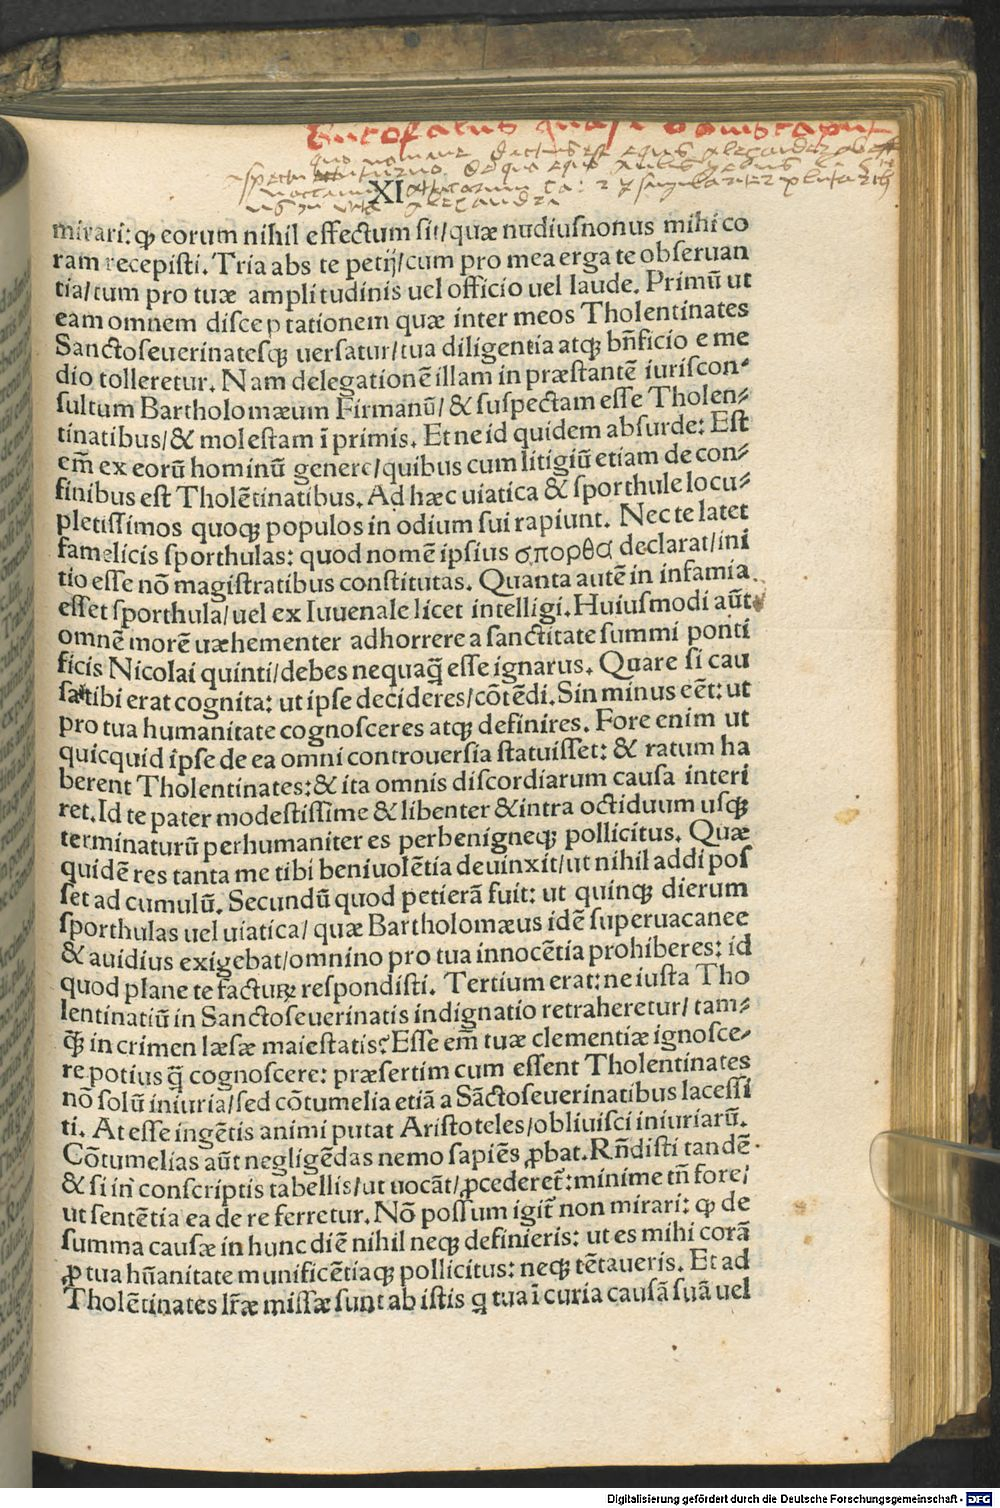 Bucofalus quasi bovis caput
quo nomine dictus est equus alexandri ab
aspectu
XI
us in vita alexandri
mirari: ꝙ eorum nihil effectum sit/quæ nudiusnonus mihi co
ram recepisti. Tria abs te petij/cum pro mea erga te obseruan
tia/tum pro tuæ amplitudinis uel officio uel laude. Primũ ut
eam omnem disceptationem quæ inter meos Tholentinates
Sanctoseuerinatesqꝫ uersatur/tua diligentia atqꝫ bñficio e me
dio tolleretur. Nam delegationẽ illam in præstantẽ iuriscon⸗
sultum Bartholomæum Firmanũ/& suspectam esse Tholen⸗
tinatibus/& molestam ĩ primis. Et ne id quidem absurde: Est
em̃ ex eorũ hominũ genere/quibus cum litigiũ etiam de con⸗
finibus est Tholẽtinatibus. Ad hæc uiatica & sporthule locu⸗
pletissimos quoqꝫ populos in odium sui rapiunt. Nec te latet
famelicis sporthulas: quod nomẽ ipsius σπορθα declarat/ini
tio esse nõ magistratibus constitutas. Quanta autẽ in infamia
esset sporthula/uel ex Iuuenale licet intelligi. Huiusmodi aũt
omnẽ morẽ uæhementer adhorrere a sanctitate summi ponti
ficis Nicolai quinti/debes nequaq̃ esse ignarus. Quare si cau
sa tibi erat cognita: ut ipse decideres/cõtẽdi. Sin minus eẽt: ut
pro tua humanitate cognosceres atqꝫ definires. Fore enim ut
quicquid ipse de ea omni controuersia statuisset: & ratum ha
berent Tholentinates: & ita omnis discordiarum causa interi
ret. Id te pater modestissime & libenter & intra octiduum usqꝫ
terminaturũ perhumaniter es perbenigneqꝫ pollicitus. Quæ
quidẽ res tanta me tibi beniuolẽtia deuinxit/ut nihil addi pos
set ad cumulũ. Secundũ quod petierã fuit: ut quinqꝫ dierum
sporthulas uel uiatica/ quæ Bartholomæus idẽ superuacanee
& auidius exigebat/omnino pro tua innocẽtia prohiberes: id
quod plane te facturꝝ respondisti. Tertium erat: ne iusta Tho
lentinatiũ in Sanctoseuerinatis indignatio retraheretur/ tam⸗
q̃ in crimen læsæ maiestatis? Esse em̃ tuæ clementiæ ignosce⸗
re potius q̃ cognoscere: præsertim cum essent Tholentinates
nõ solũ iniuria/sed cõtumelia etiã a Sãctoseuerinatibus lacessi
ti. At esse ingẽtis animi putat Aristoteles/obliuisci iniuriarũ.
Cõtumelias aũt negligẽdas nemo sapiẽs ꝓbat. Rñdisti tandẽ
& si in conscriptis tabellis/ut uocãt/ꝓcederet̃: minime tñ fore/
ut sentẽtia ea de re ferretur. Nõ possum igit̃ non mirari: ꝙ de
summa causæ in hunc diẽ nihil neqꝫ definieris: ut es mihi corã
ꝓ tua hũanitate munificẽtiaqꝫ pollicitus: neqꝫ tẽtaueris. Et ad
Tholẽtinates lr̃æ missæ sunt ab istis q̃ tua ĩ curia causã suã uel
Digitalisierung gefördert durch die Deutsche Forschungsgemeinschaft - DFG